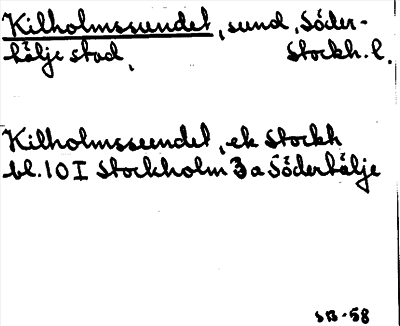 Kilholmssundet, sund, Söder-
tälje stad, Stockh. l.
Kilholmssundet, ek Stockh
bl. 10 I Stockholm 3 a Södertälje
SB-58